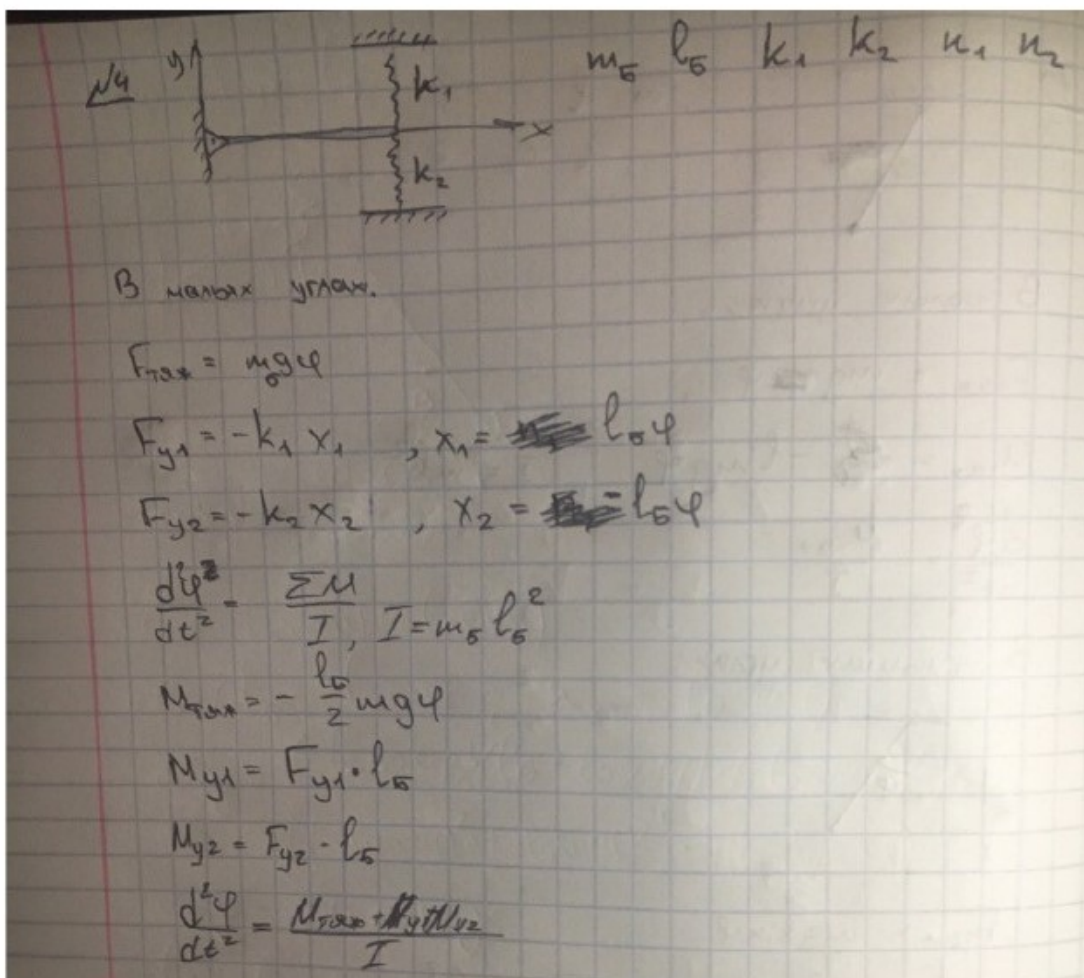 m_Б l_Б k_1 k_2 н_1 н_2
№4 y k_1
x
k_2
В малых углах.
F_тяж = m_б gφ
F_y1 = -k_1 x_1 , x_1 = l_Б φ
F_y2 = -k_2 x_2 , x_2 = - l_Б φ
d²φ/dt² = ΣM/I, I = m_Б l_Б²
M_тяж = - l_Б/2 mgφ
M_y1 = F_y1 · l_Б
M_y2 = F_y2 · l_Б
d²φ/dt² = M_тяж + M_y1 + M_y2 / I